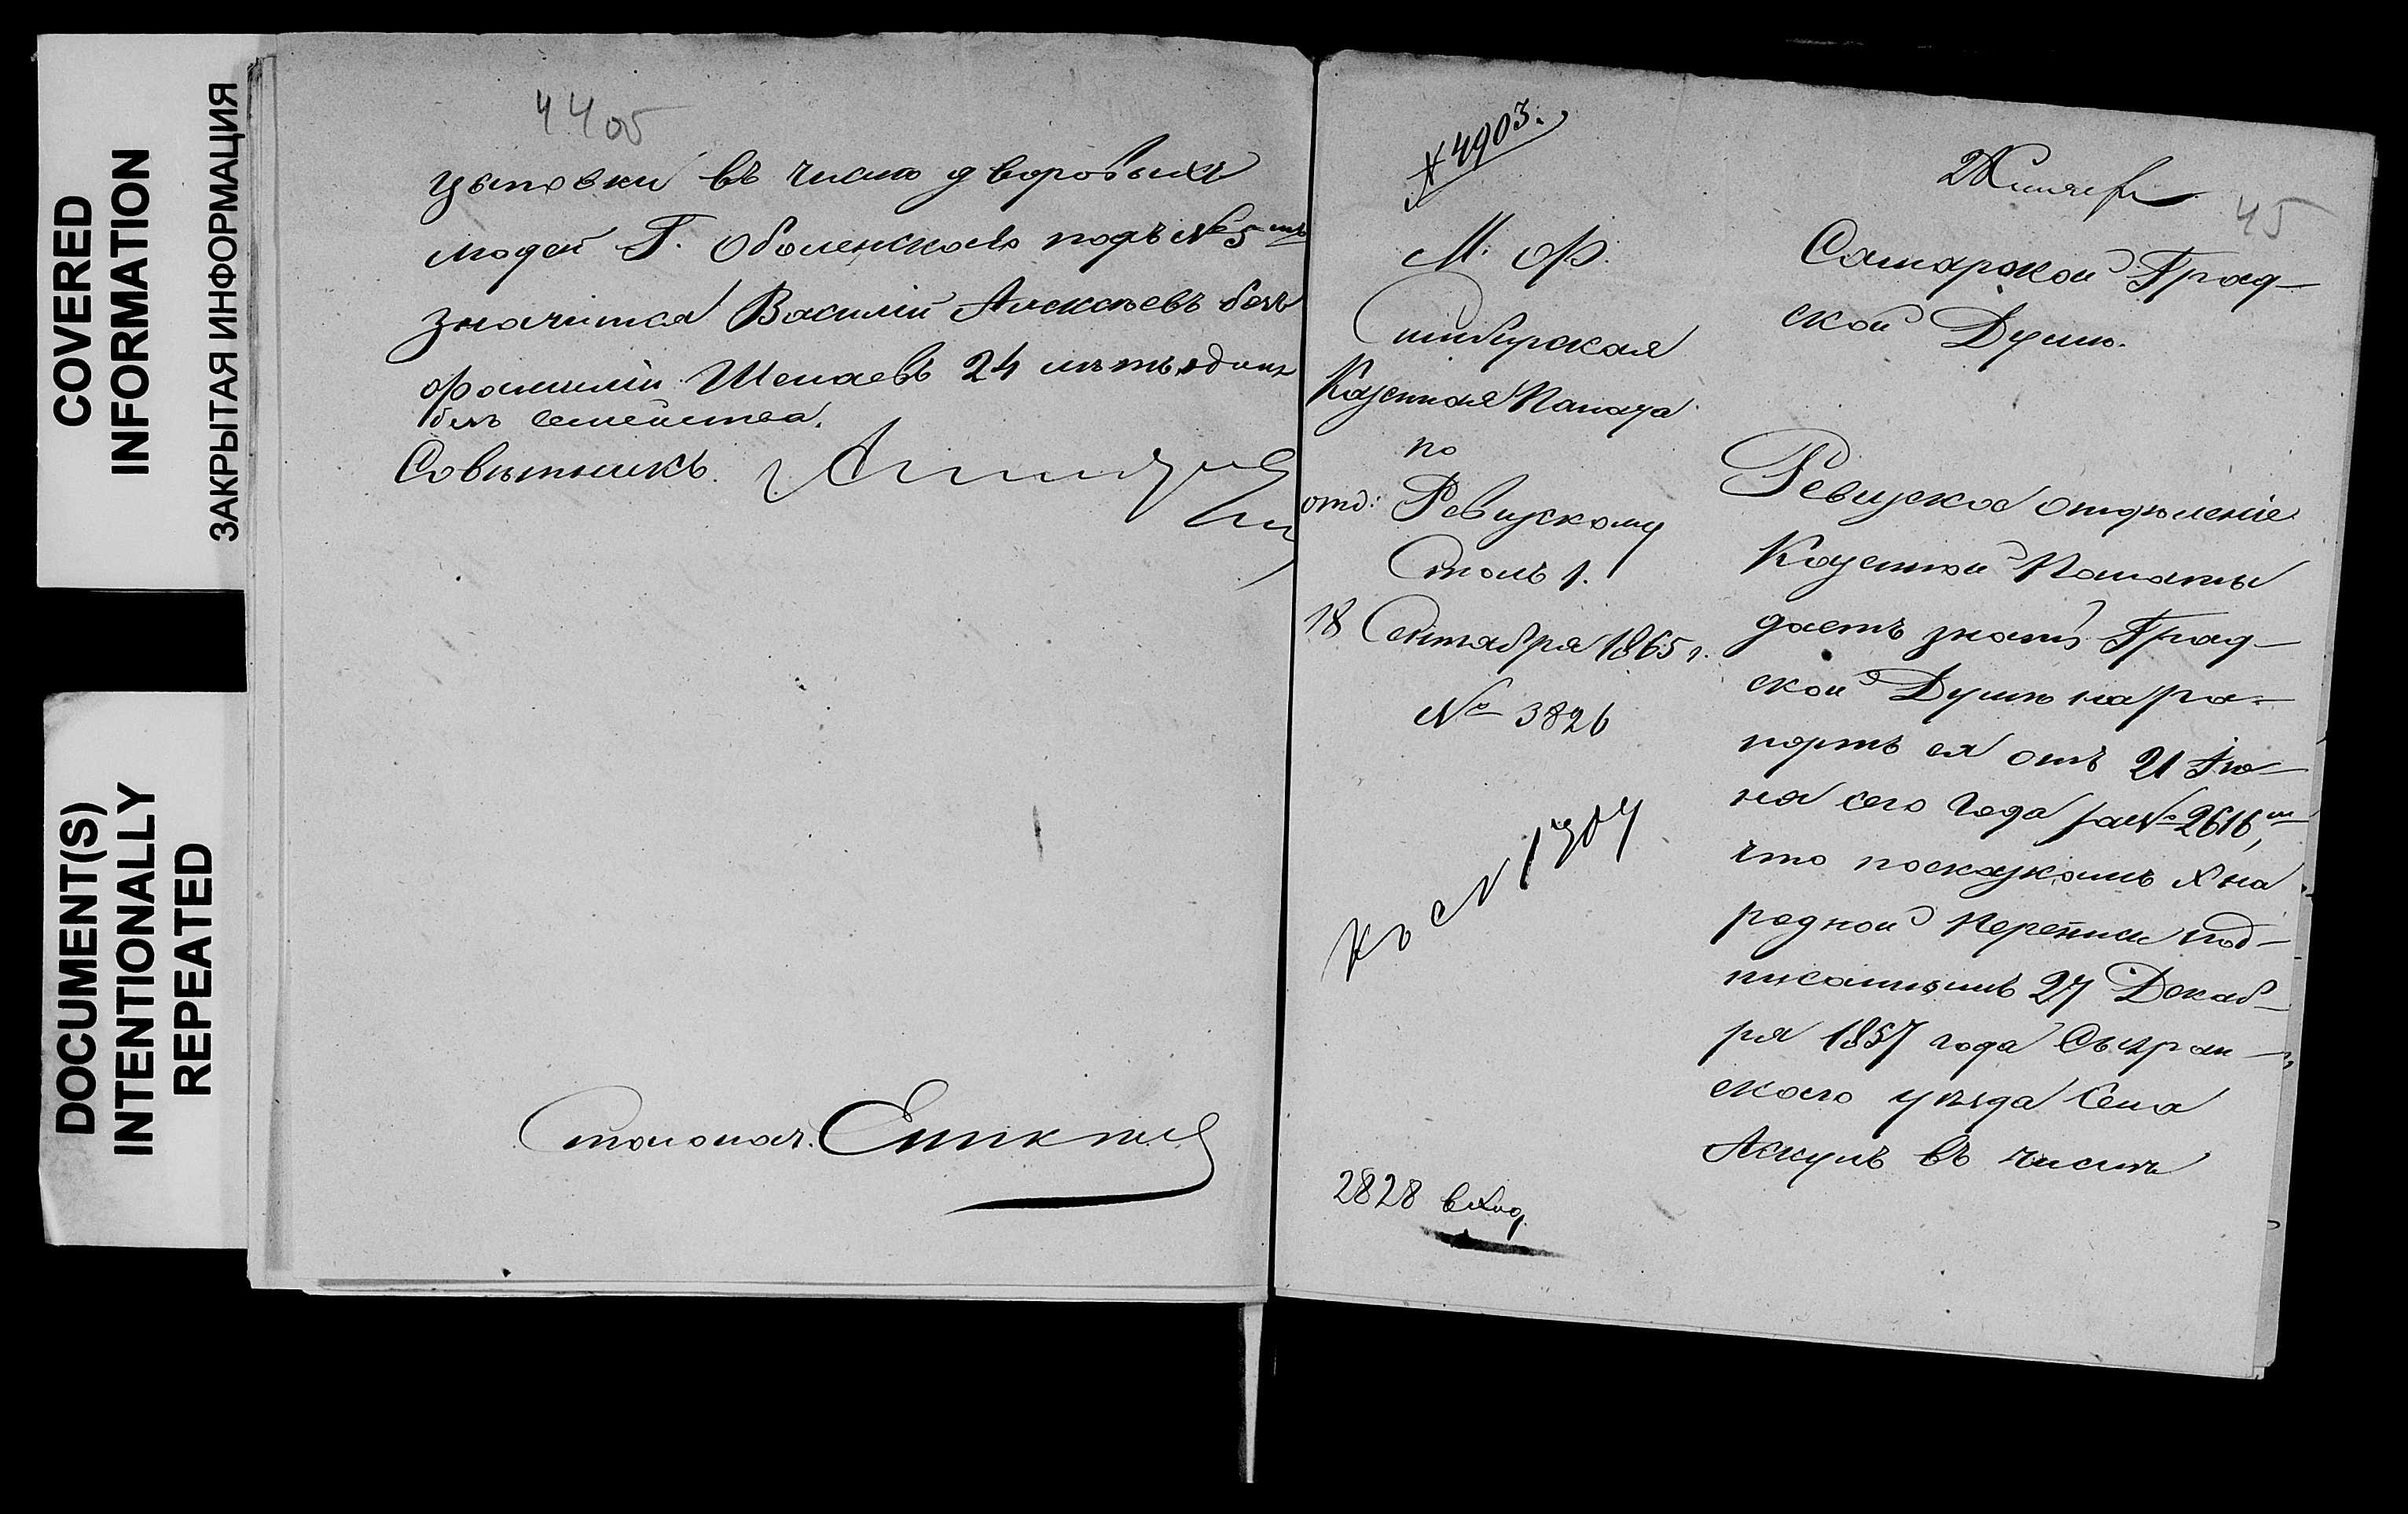 COVERED
INFORMATION
ЗАКРЫТАЯ ИНФОРМАЦИЯ
DOCUMENT(S)
INTENTIONALLY
REPEATED
44 об
въ число дворовыхъ
людей Г. Оболенскаго подъ № 5 мъ
значится Василій Алексѣевъ безъ
фамиліи 24 лѣтъ одинъ
безъ семейства.
Совѣтникъ.
Столонач.
№ 4903.
45
М. Ф.
Симбирская
Казенная Палата
по
отд: Ревизскому
Столъ 1.
18 Сентября 1865 г.
№ 3826
Къ № 1304
2828 вход.
Самарской Град-
ской Думѣ.
Ревизское отдѣленіе
Казенной Палаты
даетъ знать Град-
ской Думѣ на ра-
портъ ея отъ 21 Iю-
ня сего года за № 2616,
что по сказкамъ X на
родной переписи под-
писаннымъ 27 Декаб-
ря 1857 года Сызран-
скаго уѣзда Села
Аскулъ въ числѣ